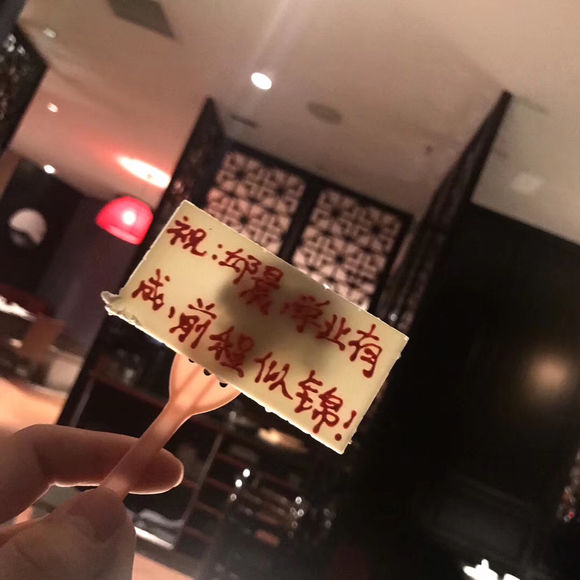 祝:邱晨,学业有
成,前程似锦!